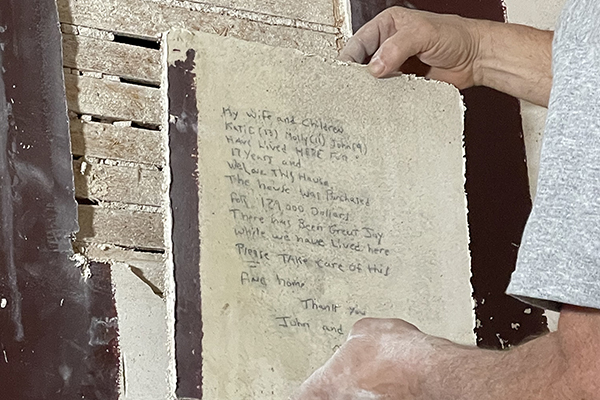 My Wife and Children
Katie (13) Molly (11) John (9)
HAVE Lived HERE FOR
17 years and
We Love This House
The house was Purchased
FOR 129,000 Dollars
There has Been Great Joy
While we have Lived here
Please TAKE Care of this
Fine home
Thank you
John and